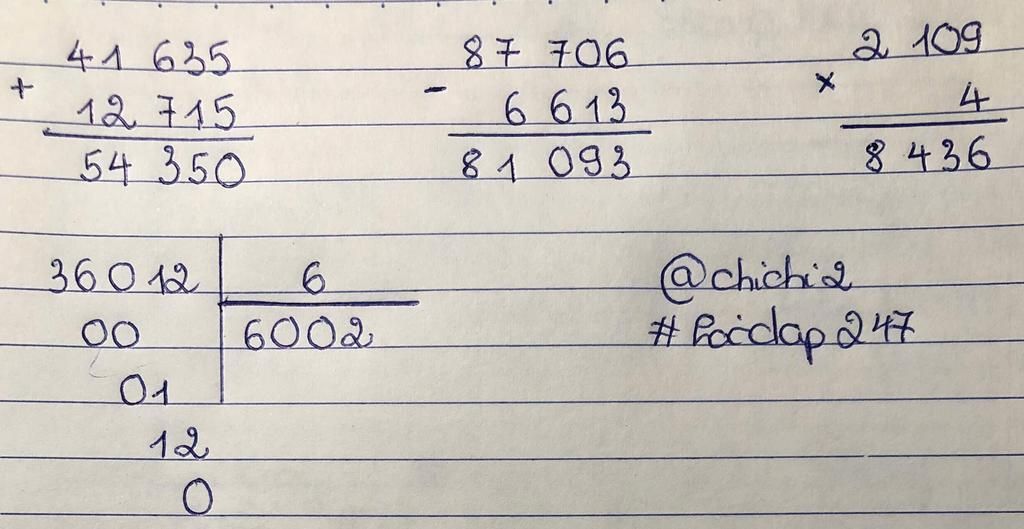 41 635
+
12 715
54 350
87 706
-
6 613
81 093
2 109
×
4
8 436
36012 6
00 6002
01
12
0
@chichi2
#hoiclap247